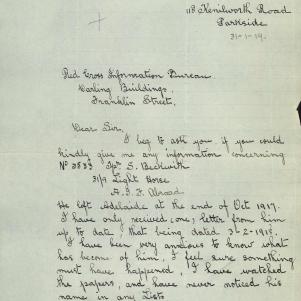 118 Kenilworth Road
Parkside
31-1-19.
Red Cross Information Bureau
Darling Buildings,
Franklin Street,
Dear Sir,
I beg to ask you if you could
kindly give me any information concerning
No 3533 Tpr S. Beckwith
3/9 Light Horse
A.I.F Abroad
He left Adelaide at the end of Oct 1917.
I have only received, one; letter from him
up to date; that being dated 3-2-1918.
I have been very anxious to know what
has become of him, I feel sure something
must have happened, I have watched
the papers, and have never noticed his
name in any Lists